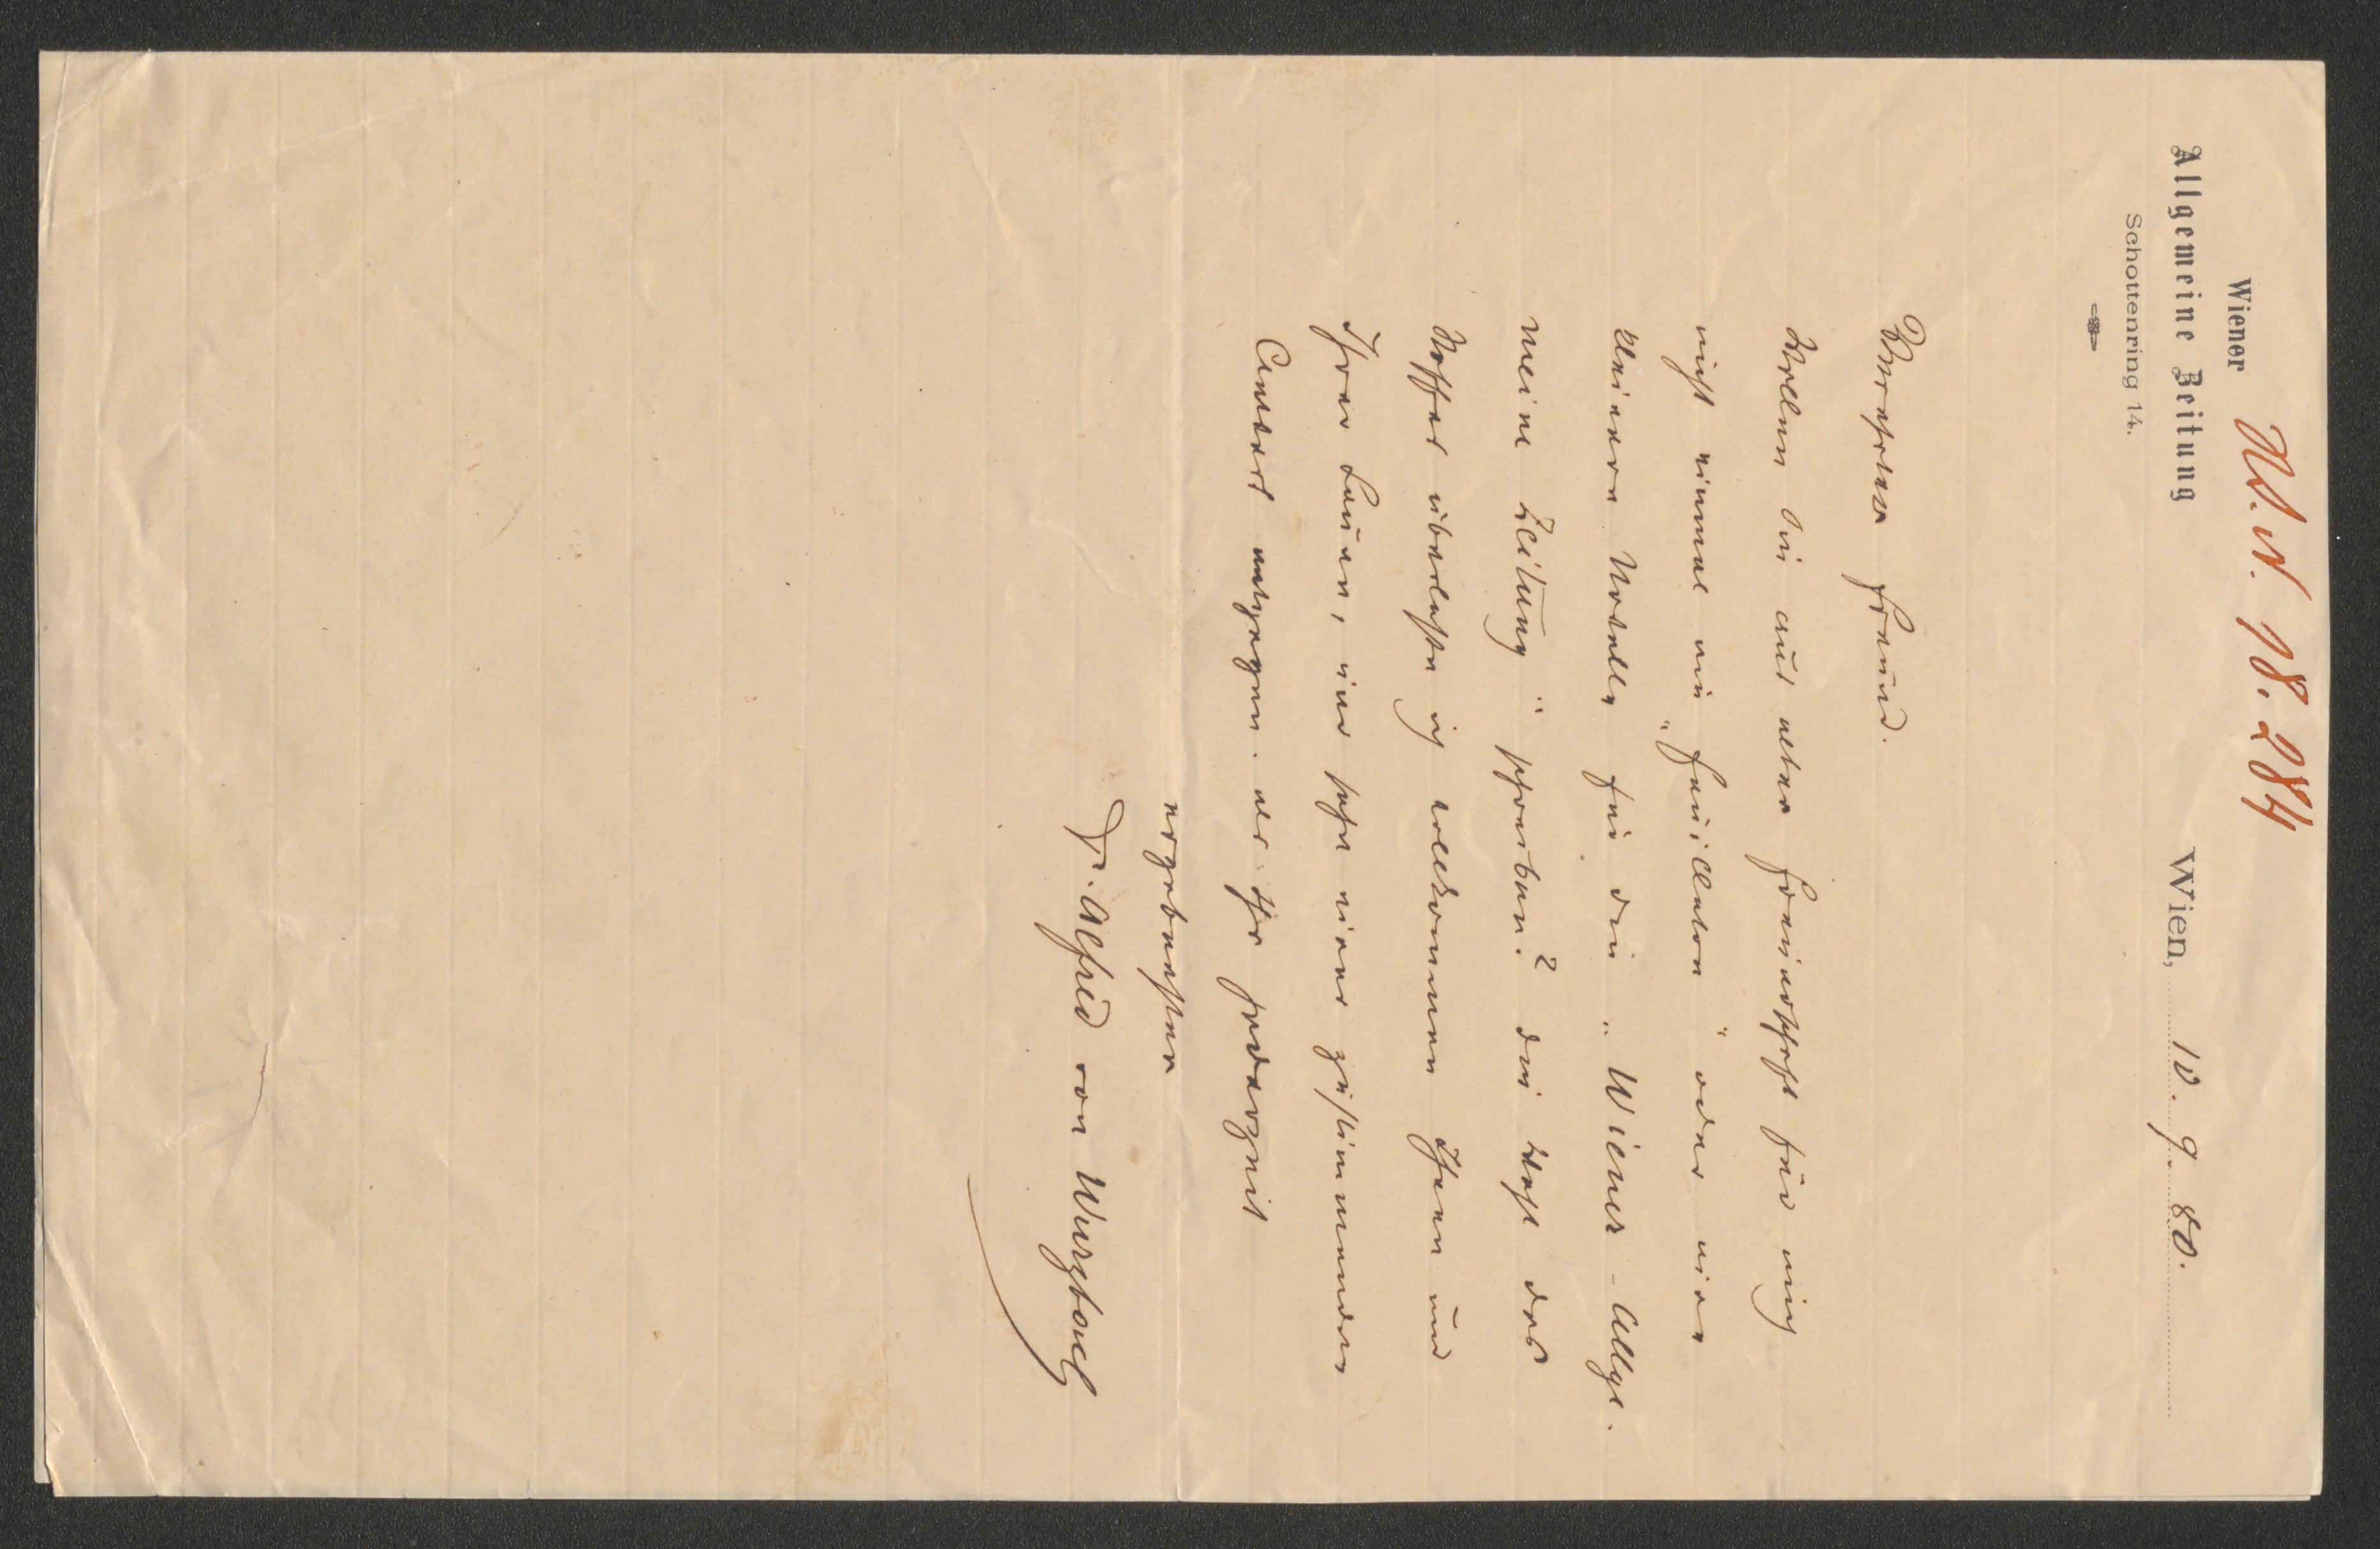 Wiener
Allgemeine Zeitung
Schottenring 14.
I.N. 18.284
Wien, 10. 9. 80.
Verehrter Freund.
Wollen Sie aus alter Freundschaft für mich
nicht einmal ein „Feuilleton“ oder eine
kleinere Novelle für die „Wiener-Allge-
meine Zeitung“ schreiben? Die Wahl des
Stoffes überlasse ich vollkommen Ihnen und
Ihrer Laune, und sehe einer zustimmenden
Antwort entgegen. als Ihr jederzeit
ergebenster
Dr. Alfred von Wurzbach